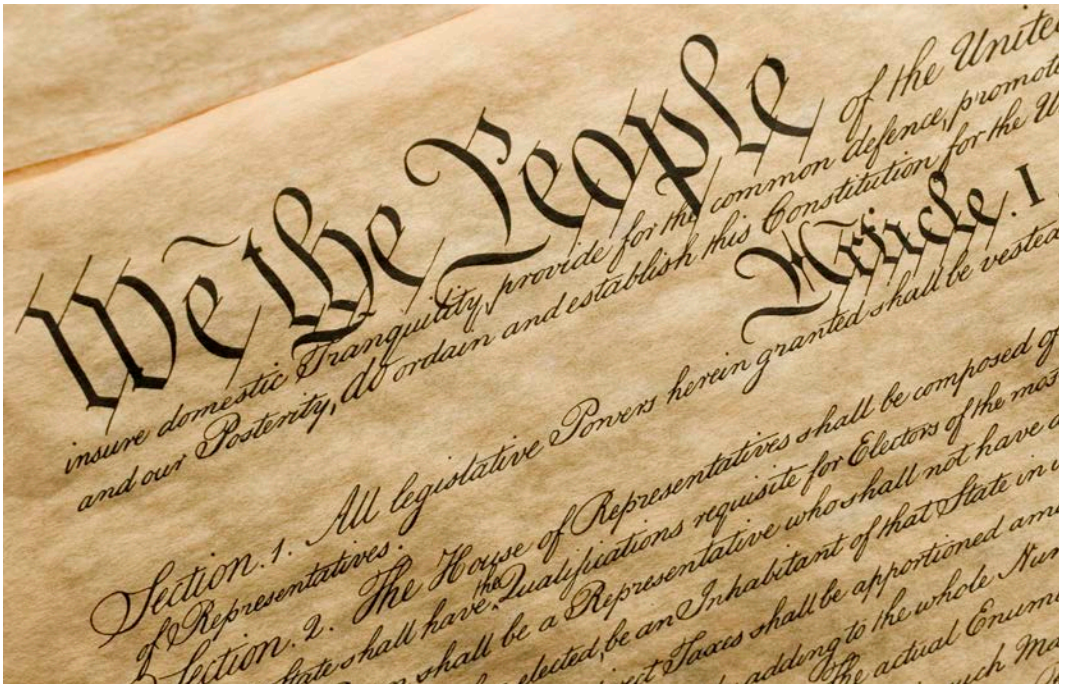 We the People of the United
insure domestic Tranquility, provide for the common defence, promote
and our Posterity, do ordain and establish this Constitution for the U
Article. I
Section. 1. All legislative Powers herein granted shall be vested
of Representatives.
Section. 2. The House of Representatives shall be composed of
State shall have the Qualifications requisite for Electors of the most
shall be a Representative who shall not have a
elected, be an Inhabitant of that State in
Taxes shall be apportioned am
adding to the whole Num
The actual Enum